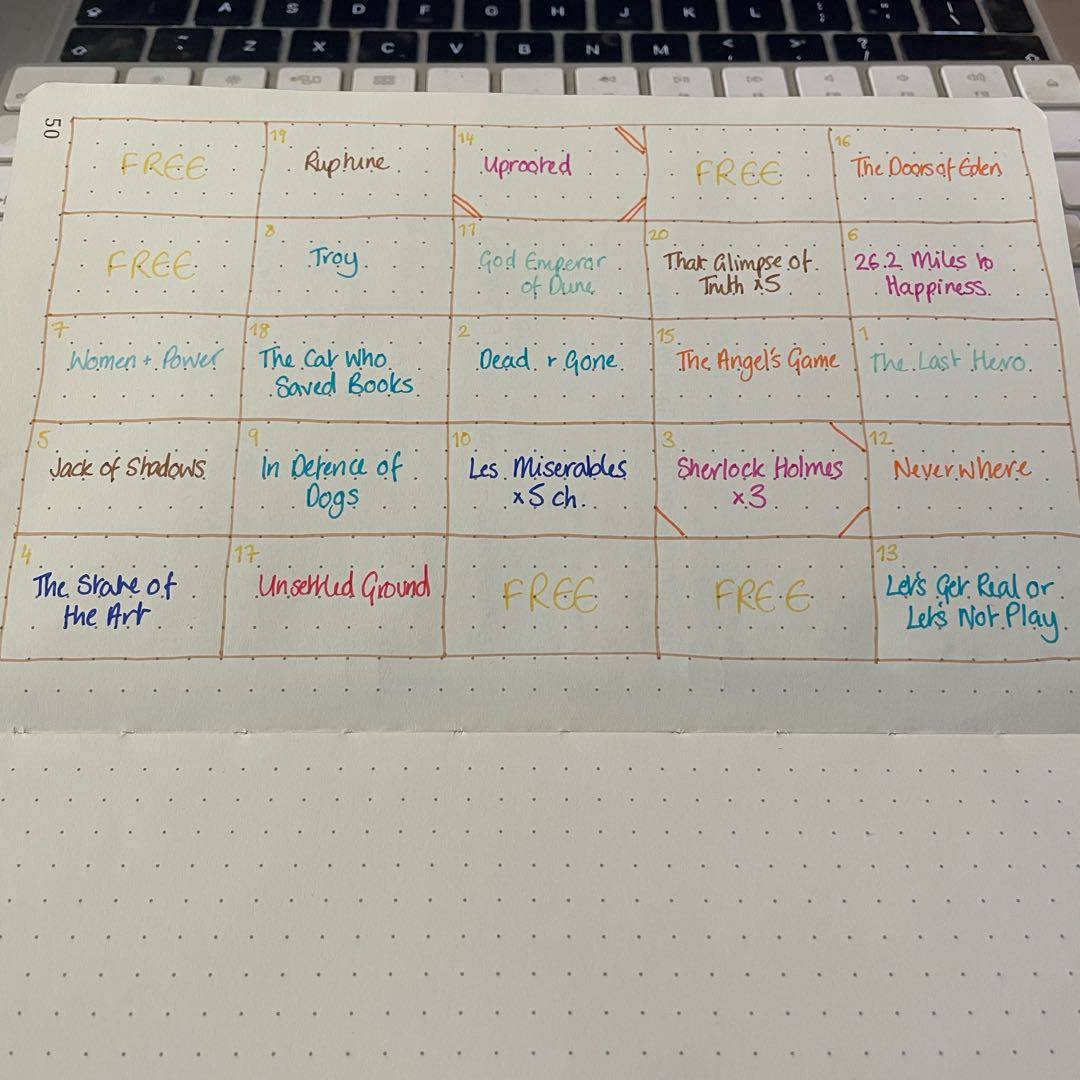 A S D F G H J K L
Z X C V B N M
50
FREE
19
Ruptune
14
Uprooted
FREE
16
The Doors of Eden
FREE
8
Troy
11
God Emperor
of Dune
20
That Glimpse of
Truth x5
6
26.2 Miles to
Happiness.
7
Women + Power
18
The Cat Who
Saved Books
2
Dead + Gone
15
The Angel's Game
1
The Last Hero
5
Jack of Shadows
9
In Defence of
Dogs
10
Les Miserables
x5 ch.
3
Sherlock Holmes
x3
12
Neverwhere
4
The State of
the Art
17
Unsettled Ground
FREE
FREE
13
Let's Get Real or
Let's Not Play